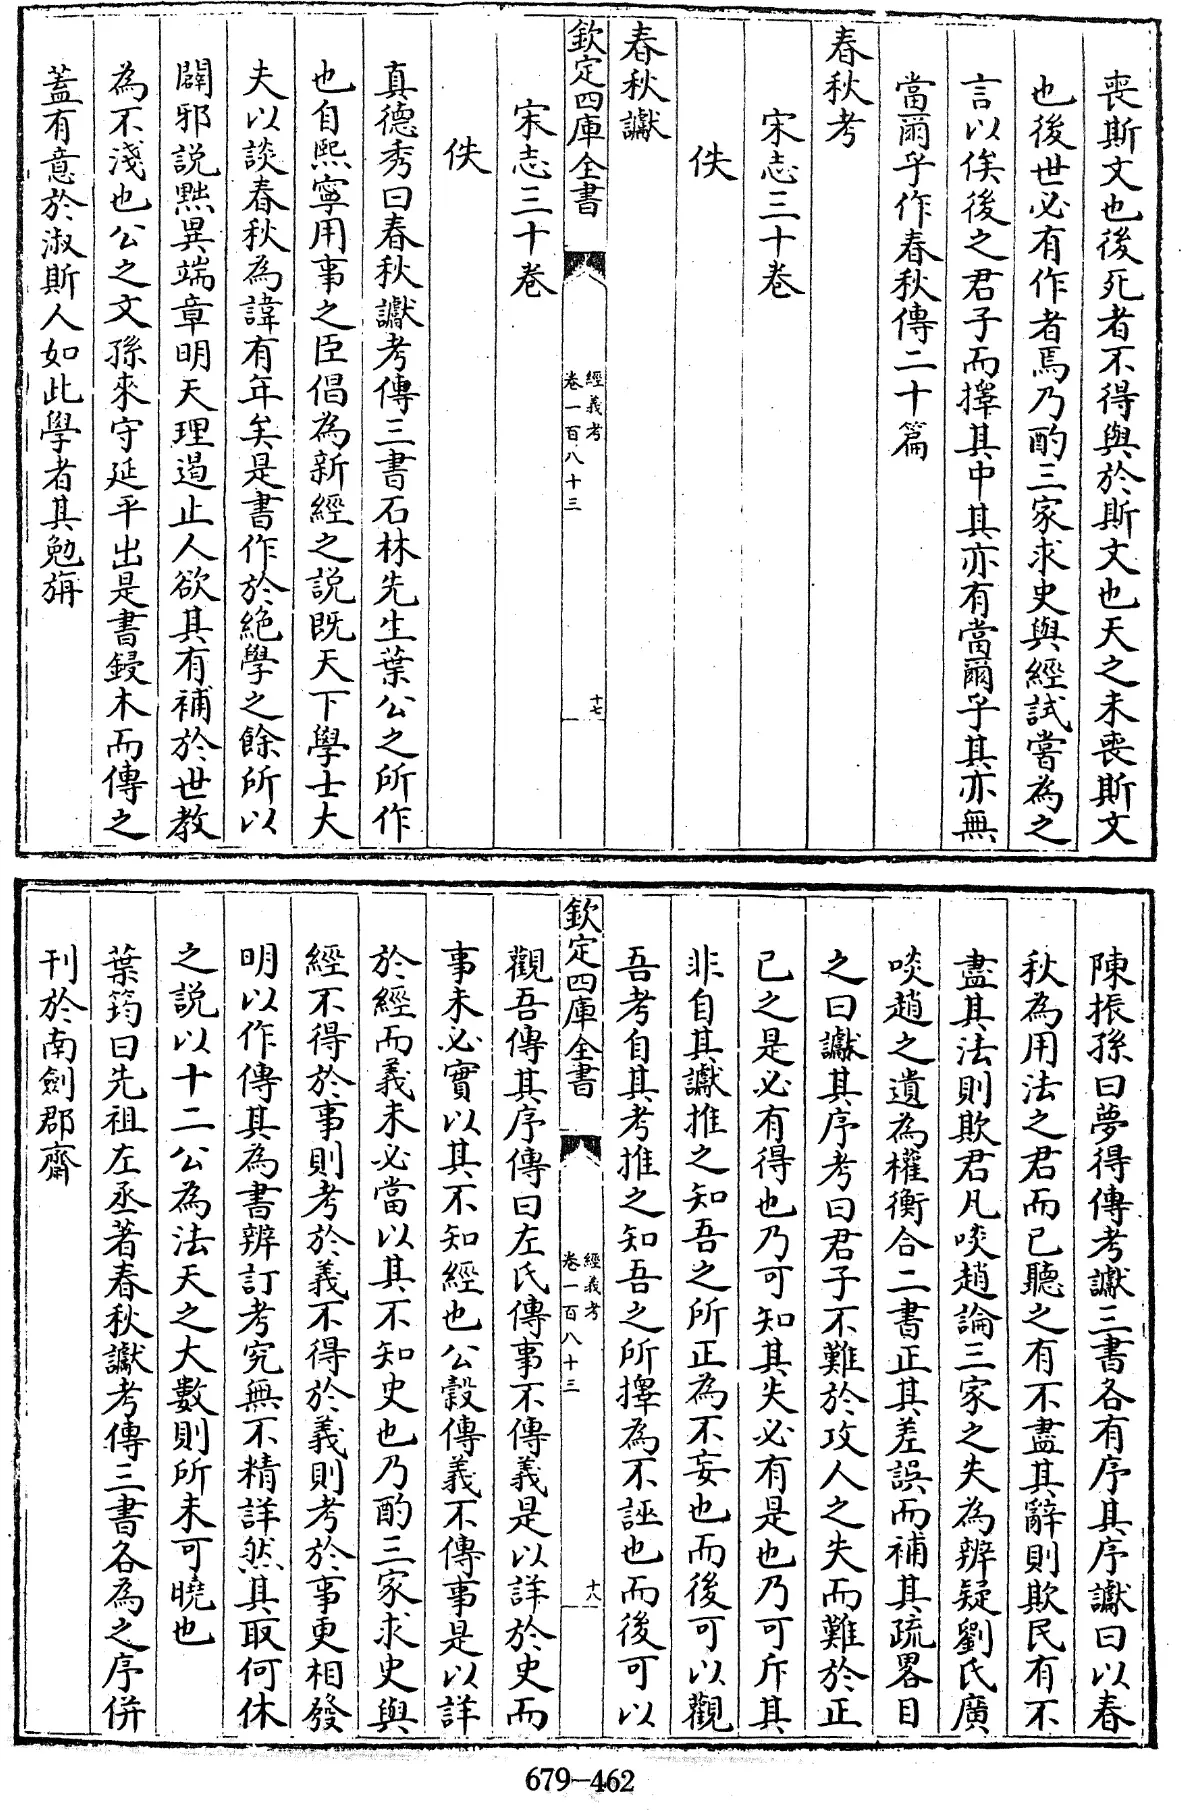 喪斯文也後死者不得與於斯文也天之未喪斯文
也後世必有作者焉乃酌三家求史與經試嘗為之
言以俟後之君子而擇其中其亦有當爾乎其亦無
當爾乎作春秋傳二十篇
春秋考
宋志三十卷
佚
春秋讞
欽定四庫全書
經義考
卷一百八十三
十七
宋志三十卷
佚
真德秀曰春秋讞考傳三書石林先生葉公之所作
也自熙寧用事之臣倡為新經之說既天下學士大
夫以談春秋為諱有年矣是書作於絕學之餘所以
闢邪說黜異端章明天理遏止人欲其有補於世教
為不淺也公之文孫來守延平出是書鋟木而傳之
蓋有意於淑斯人如此學者其勉旃
陳振孫曰夢得傳考讞三書各有序其序讞曰以春
秋為用法之君而已聽之有不盡其辭則欺民有不
盡其法則欺君凡啖趙論三家之失為辨疑劉氏廣
啖趙之遺為權衡合二書正其差誤而補其疏畧目
之曰讞其序考曰君子不難於攻人之失而難於正
已之是必有得也乃可知其失必有是也乃可斥其
非自其讞推之知吾之所正為不妄也而後可以觀
吾考自其考推之知吾之所擇為不誣也而後可以
欽定四庫全書
經義考
卷一百八十三
十八
觀吾傳其序傳曰左氏傳事不傳義是以詳於史而
事未必實以其不知經也公穀傳義不傳事是以詳
於經而義未必當以其不知史也乃酌三家求史與
經不得於事則考於義不得於義則考於事更相發
明以作傳其為書辨訂考究無不精詳然其取何休
之說以十二公為法天之大數則所未可曉也
葉筠曰先祖左丞著春秋讞考傳三書各為之序併
刊於南劍郡齋
679-462